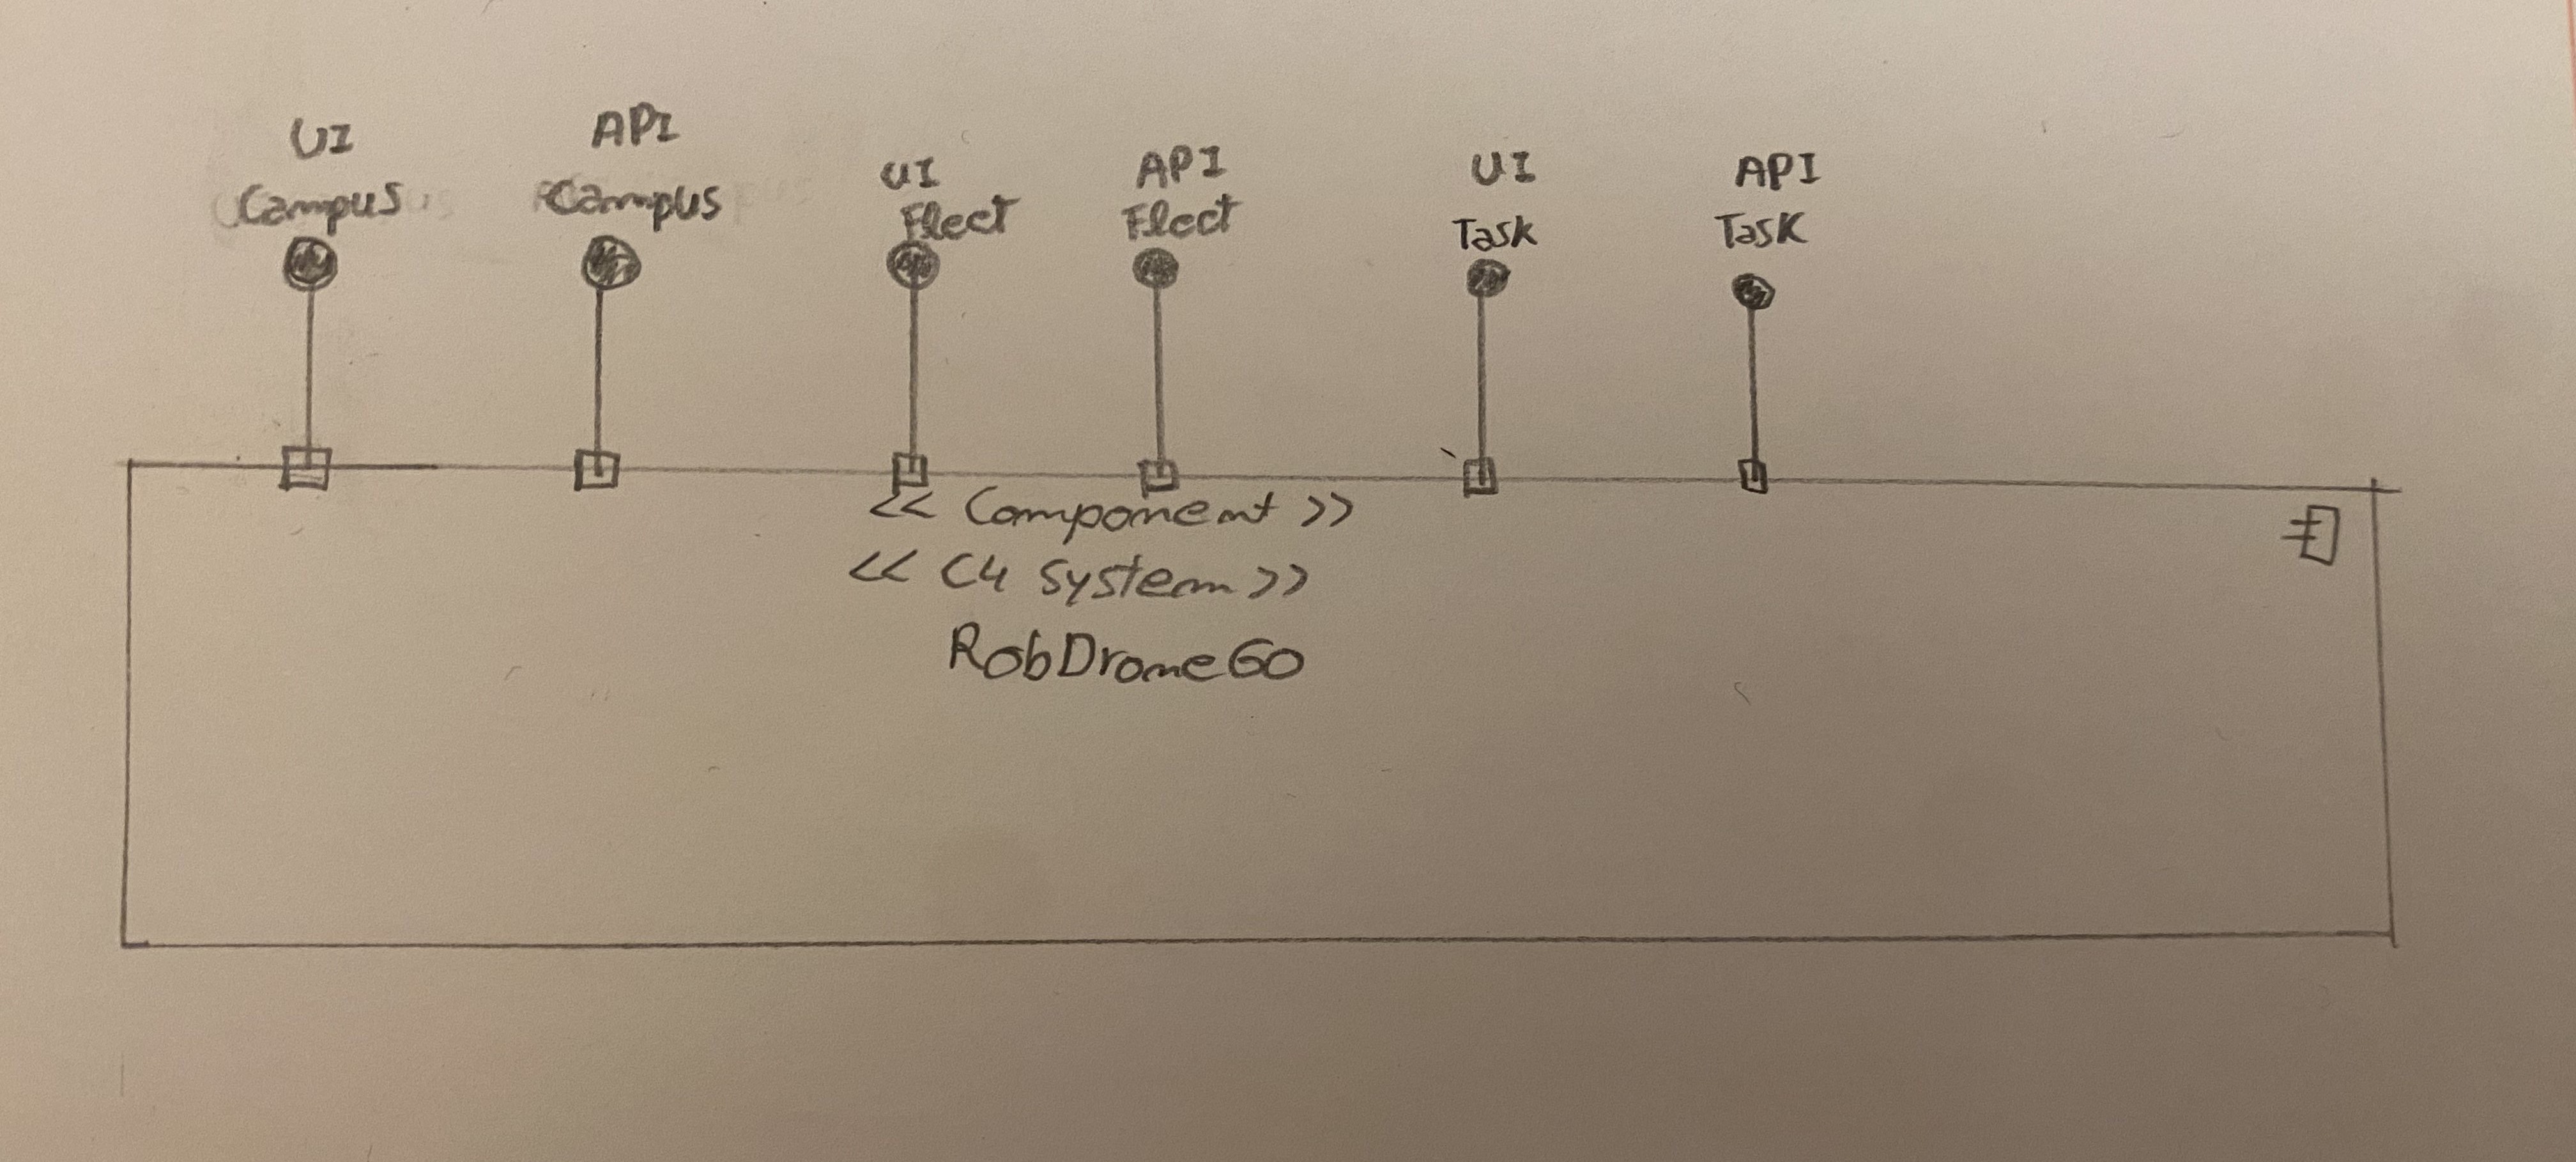 UI
Campus
API
Campus
UI
Flect
API
Flect
UI
Task
API
Task
<< Component >>
<< C4 System >>
RobDroneGo